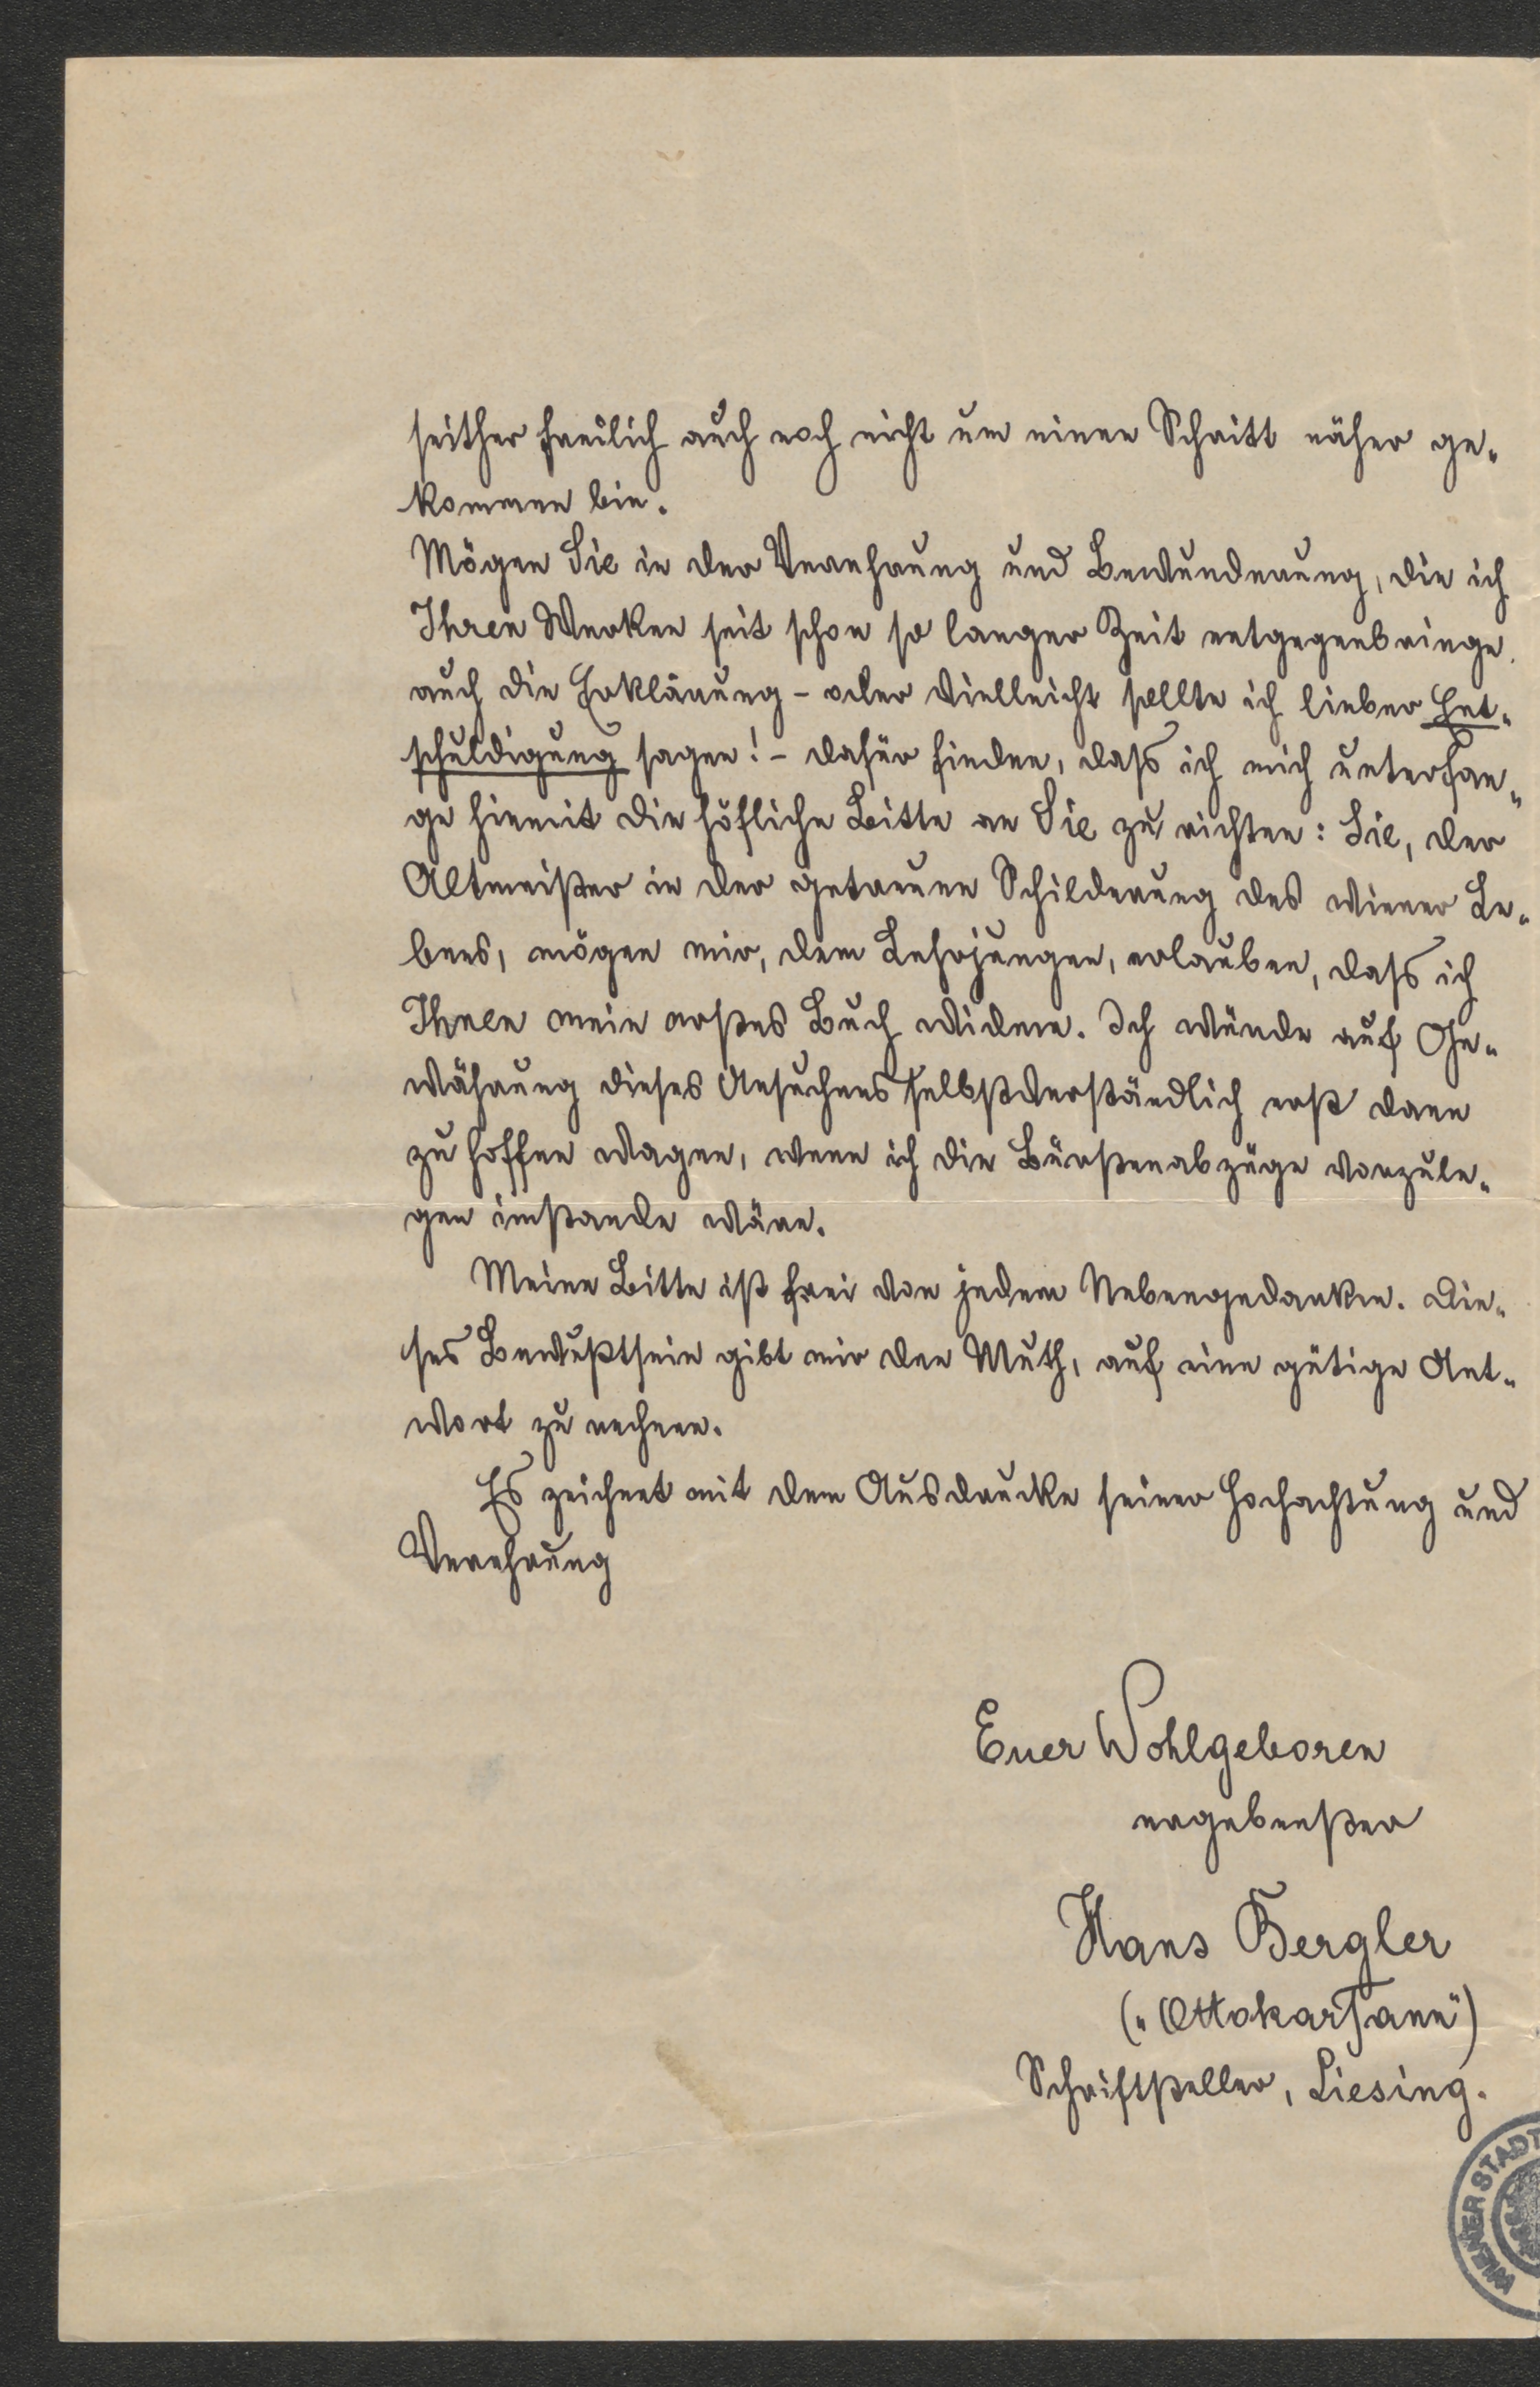 seither freilich auch noch nicht um einen Schritt näher ge-
kommen bin.
Mögen Sie in der Verehrung und Bewunderung, die ich
Ihren Werken seit schon so langer Zeit entgegenbringe,
auch die Erklärung - oder vielleicht sollte ich lieber Ent-
schuldigung sagen! - dafür finden, dass ich mich unterfan-
ge hiemit die höfliche Bitte an Sie zu richten: Sie, der
Altmeister in der getreuen Schilderung des wiener Le-
bens, mögen mir, dem Lehrjungen, erlauben, dass ich
Ihnen mein erstes Buch widme. Ich würde auf Ge-
währung dieses Ansuchens selbstverständlich erst dann
zu hoffen wagen, wenn ich die Bürstenabzüge vorzule-
gen imstande wäre.
Meine Bitte ist frei von jedem Nebengedanken. Die-
ses Bewußtsein gibt mir den Muth, auf eine gütige Ant-
wort zu rechnen.
Es zeichnet mit dem Ausdrucke seiner Hochachtung und
Verehrung
Euer Wohlgeboren
ergebenster
Hans Bergler
(„Ottokar Tann")
Schriftsteller, Liesing.
WIENER STADT